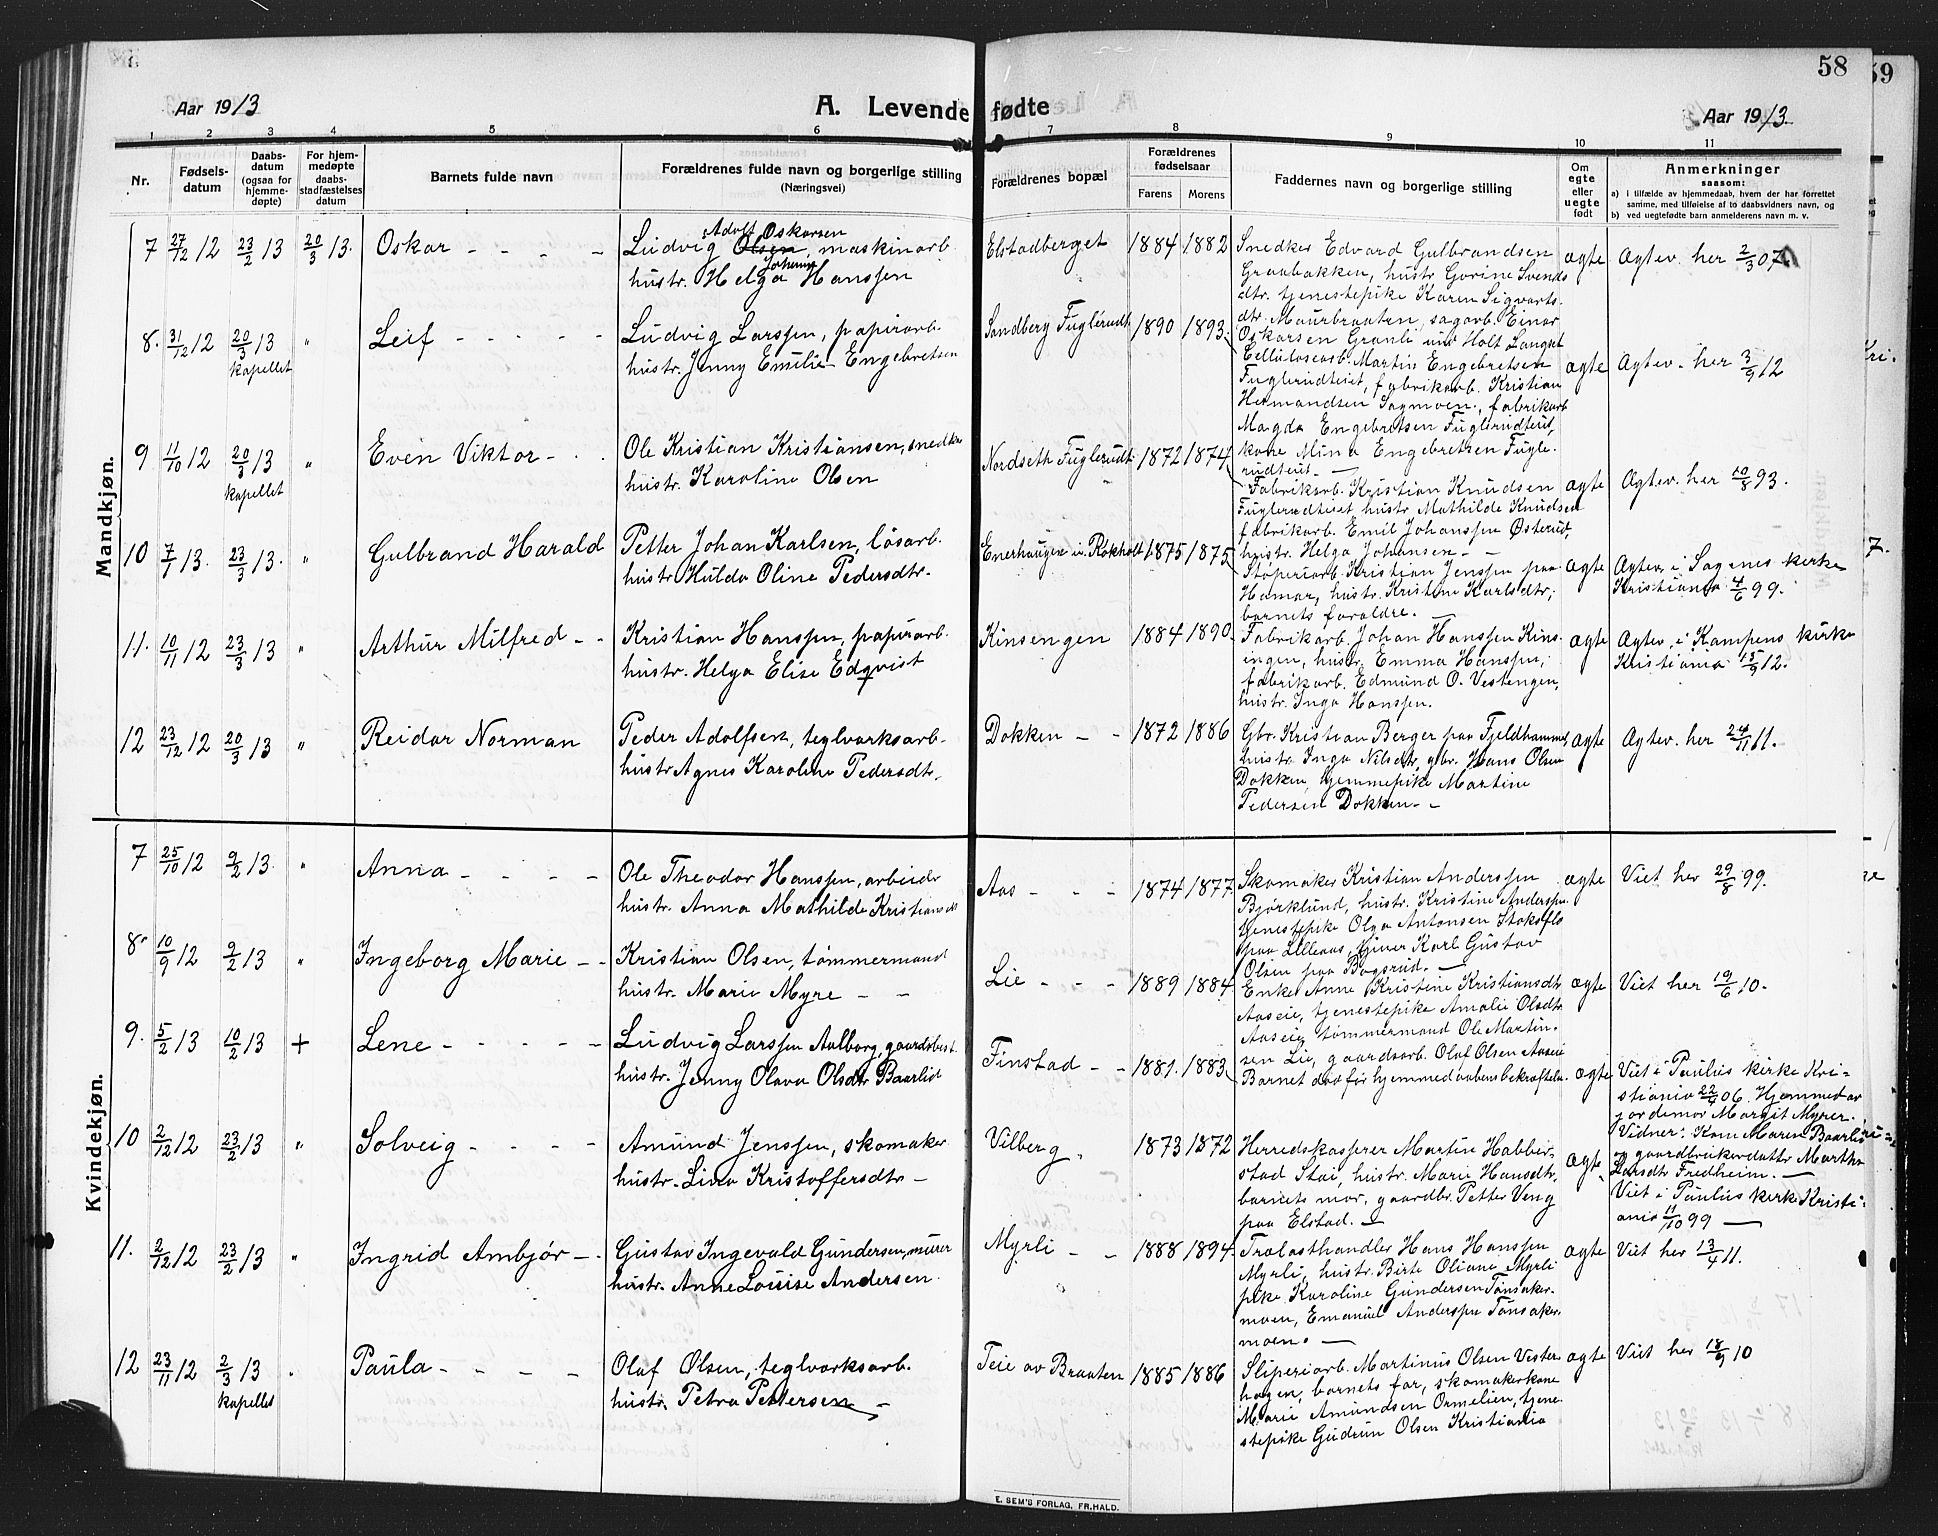 58
59
Aar 1913
A. Levende fødte
Aar 1913
1 2 3 4 5 6 7 8 9 10 11
Nr.
Fødsels-
datum
Daabs-
datum
(ogsaa for
hjemme-
døpte)
For hjem-
medøpte
daabs-
stadfæstelses
datum
Barnets fulde navn
Forældrenes fulde navn og borgerlige stilling
(Næringsvei)
Forældrenes bopæl
Forældrenes
fødselsaar
Farens Morens
Faddernes navn og borgerlige stilling
Om
egte
eller
uegte
født
Anmerkninger
saasom:
a) i tilfælde av hjemmedaab, hvem der har forrettet
samme, med tilføielse af to daabsvidners navn, og
b) ved uegtefødte barn anmelderens navn m. v.
Mandkjøn.
7 27/12 12 23/2 13 20/3 13. Oskar
Adolf Oskarsen
Ludvig Olsen, maskinarb.
Johanne
hustr. Helga Hanssen
Elstadberget 1884 1882
Snedker Edvard Gulbrandsen
Graabakken, hustr Gorine Svends
dtr. tjenestepike Karen Sigvarts-
dtr. Maurbraaten, sagarb. Einar
Oskarsen Granli und Holt Langset
ægte Ægtev. her 2/3 07.
8. 31/12 12 20/3 13 " Leif
kapellet
Ludvig Larssen, papirarb.
hustr. Jenny Emilie Engebretsen
Sandberg Fuglerudt 1890 1893
Cellulosearb. Martin Engebretsen
Fuglerudteiet, fabrikarb. Kristian
Hermandsen Sagmoen, fabrikarb
Magda Engebretsen Fuglerudteiet,
kone Mina Engebretsen Fugle-
rudteiet.
ægte Ægtev. her 3/9 12
9 11/10 12 20/3 13 " Even Viktor
kapellet
Ole Kristian Kristiansen, snedker
hustr. Karoline Olsen
Nordseth Fuglerudt 1872 1874
Fabrikarb. Kristian Knudsen
Fuglerudteiet, hustr Mathilde Knudsen
fabrikarb. Emil Johanssen Østerud,
hustr. Helga Johansen
ægte Ægtev. her 10/8 93.
10 7/1 13. 23/3 13. " Gulbrand Harald
Petter Johan Karlsen, løsarb.
hustr Hulda Oline Pedersdtr.
Enerhaugen u. Røkholt 1875 1875
Støperiarb. Kristian Jenssen paa
Hamar, hustr. Kristine Karlsdtr;
barnets forældre.
ægte Ægtev. i Sagenes kerke
Kristiania 4/6 99.
11. 10/11 12 23/3 13 " Arthur Milfred
Kristian Hanssen, papirarb.
hustr. Helga Elise Edqvist
Kinsengen 1884 1890
Fabrikarb. Johan Hanssen Kins-
ingen, hustr. Emma Hanssen;
fabrikarb. Edmund O. Vestengen,
hustr. Inga Hanssen.
ægte Ægtev. i Kampens kirke
Kristiania 15/9 12.
12 23/12 12 20/3 13 " Reidar Norman
Peder Adolfsen, teglverksarb.
hustr Agnes Karoline Pedersdtr.
Dokken 1872 1886
Gbr. Kristian Berger paa Fjeldhammer
hustr Inga Nilsdtr, gbr. Hans Olsen
Dokken, hjemmepike Martine
Pedersen Dokken
ægte Ægtev. her 24/11 11.
Kvindekjøn.
7 25/10 12 9/2 13. " Anna
Ole Theodor Hanssen, arbeider
hustr. Anna Mathilde Kristiansdt
Aas 1874 1877
Skomaker Kristian Anderssen
Bjørklund, hustr. Kristine Anderssen
tjenestepike Olga Antonsen Stoksflo
paa Lilleaas, tjener Karl Gustav
Olsen paa Bogsrud.
ægte Viet her 29/8 99.
8. 10/9 12 9/2 13 " Ingeborg Marie
Kristian Olsen, tømmermand
hustr. Marie Myre
Lie 1889 1884
Enke Anne Kristine Kristiansdtr
Aaseie, tjenestepike Amalie Olsdtr
Aaseie tømmermand Ole Martin-
sen Lie, gaardsarb. Olaf Olsen Aaseie
ægte Viet her 19/6 10.
9. 5/2 13 10/2 13 + Lene
Ludvig Larssen Aalborg, gaardsbest.
hustr. Jenny Olava Olsdtr Baarlid
Finstad 1881. 1883
Barnet død før hjemmedaabens bekræftelse.
ægte Viet i Paulus kirke Kri-
stiania 22/4 06. Hjemmed av
jordemor Margit Myrer.
Vidner: Kone Maren Baarlid
og gaardbrukerdatter Martha
Larsdtr Fredheim.
10 2/12 12 23/2 13 " Solveig
Amund Jenssen, skomaker
hustr. Lina Kristoffersdtr
Vilberg 1873 1872
Herredskasserer Martin Habber-
stad Stai, hustr. Marie Hansdtr,
barnets mor, gaardbr. Petter Veng
paa Elstad.
ægte Viet i Paulus kerke Kristi-
ania 11/10 99
11. 2/12 12 23/2 13 " Ingrid Ambjør
Gustav Ingevald Gundersen, murer
hustr. Anne Louise Andersen
Myrli 1888 1894
Trælasthandler Hans Hanssen
Myrli, hustr. Birte Oliane Myrli
pike Karoline Gundersen Tønsaker-
moen, Emanuel Anderssen Tønsaker-
moen.
ægte Viet her 13/4 11.
12 23/11 12 2/3 13 " Paula
kapellet
Olaf Olsen, teglverksarb.
hustr. Petra Pettersen
Teie av Braaten 1885 1886
Sliperiarb. Martinius Olsen Vester-
hagen, barnets far, skomakerkone
Marie Amundsen Ormelien, tjene-
stepike Gudrun Olsen Kristiania
ægte Viet her 18/9 10
E. SEM'S FORLAG, FR.HALD.